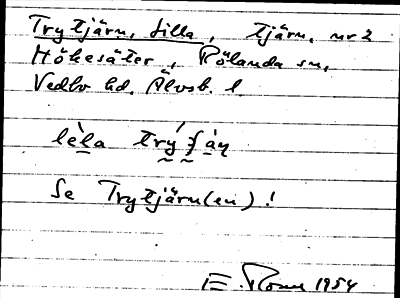 Trytjärn, Lilla, tjärn, nr 2
Hökesäter, Rölanda sn,
Vedbo hd. Älvsb. l.
Se Trytjärn(en)!
1954